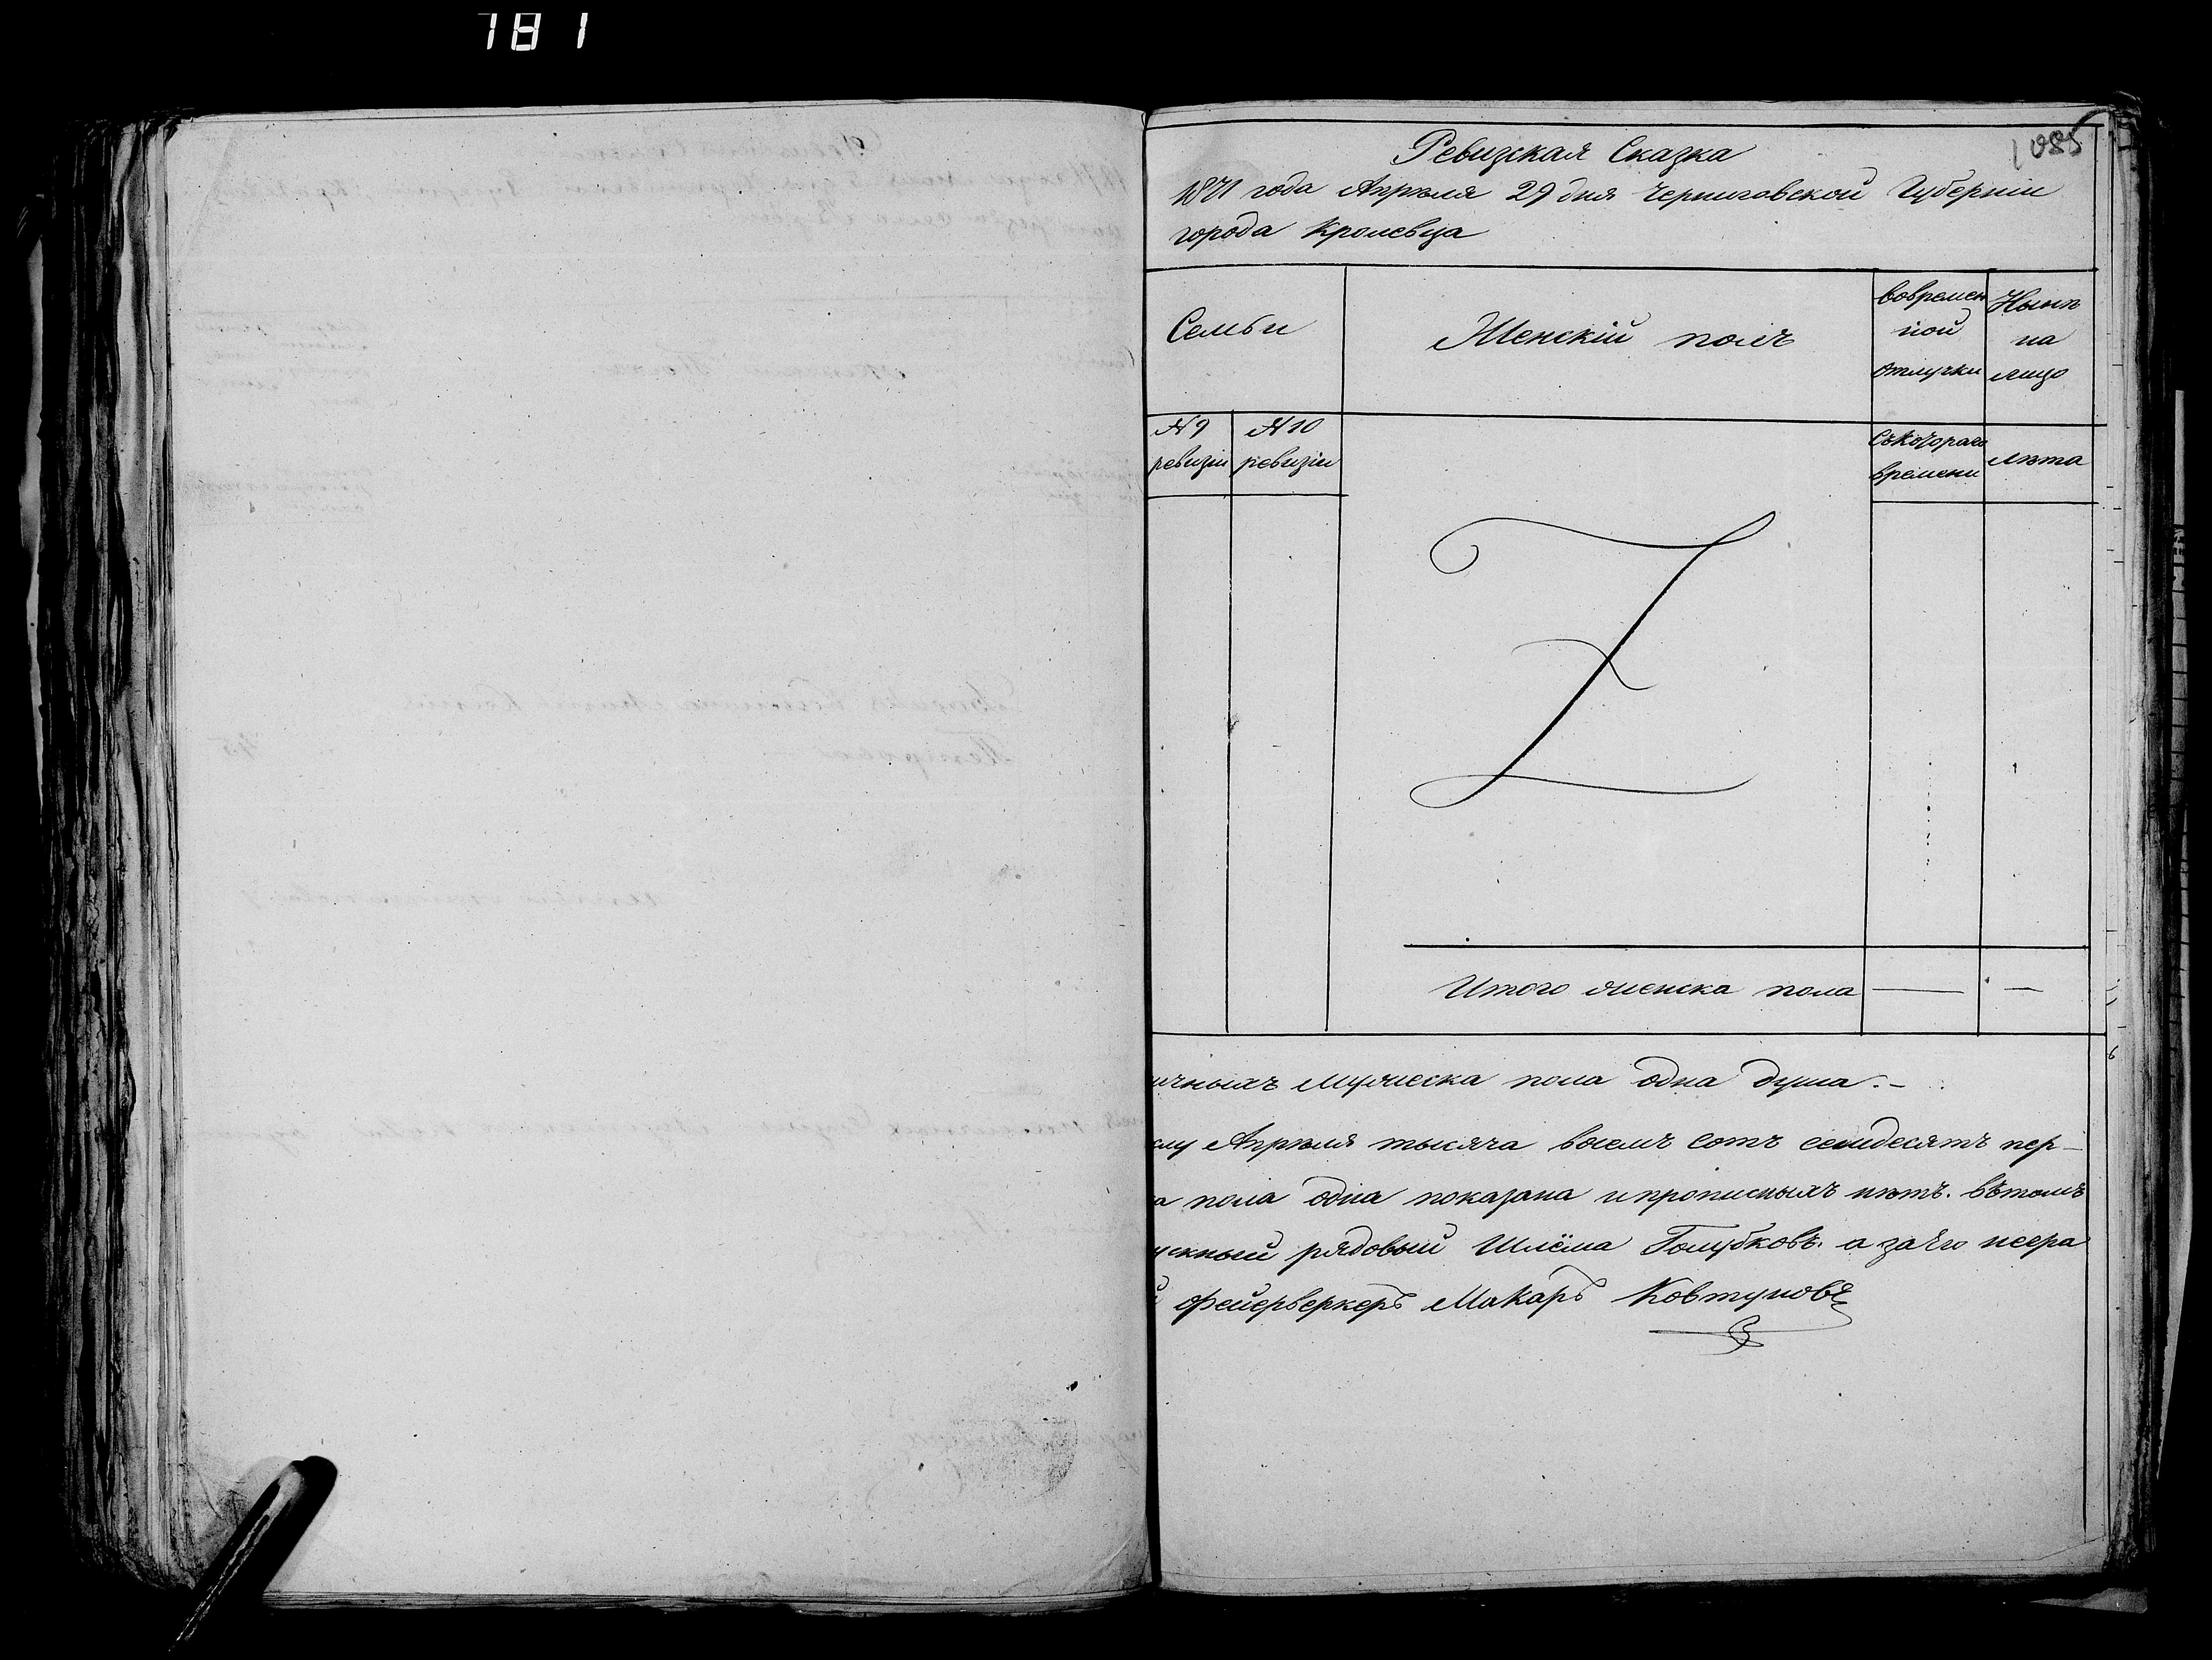 781
1085
Ревизская Сказка
1871 года Апрѣля 29 дня Черниговской Губерніи
города Кролевца
Семьи
Женскій полъ
вовремен
ной
отлучки
Нынѣ
на
лицо
№ 9
ревизіи
№ 10
ревизіи
Съкоторагo
времени
лѣта
Итого женска пола — —
ичныхъ мужеска пола одна душа.-
слу Апрѣля тысяча восемъ сотъ семдесятъ пер-
а пола одна показана и прописныхъ нѣтъ. вътомъ
ускный рядовый Шлёма Голубковъ. а за его негра
фейерверкеръ Макаръ Ковтуновъ